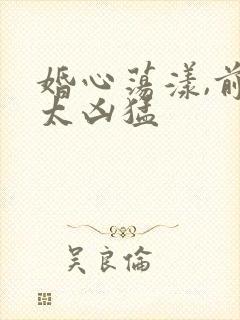 婚心荡漾,前
太凶猛
吴良倫